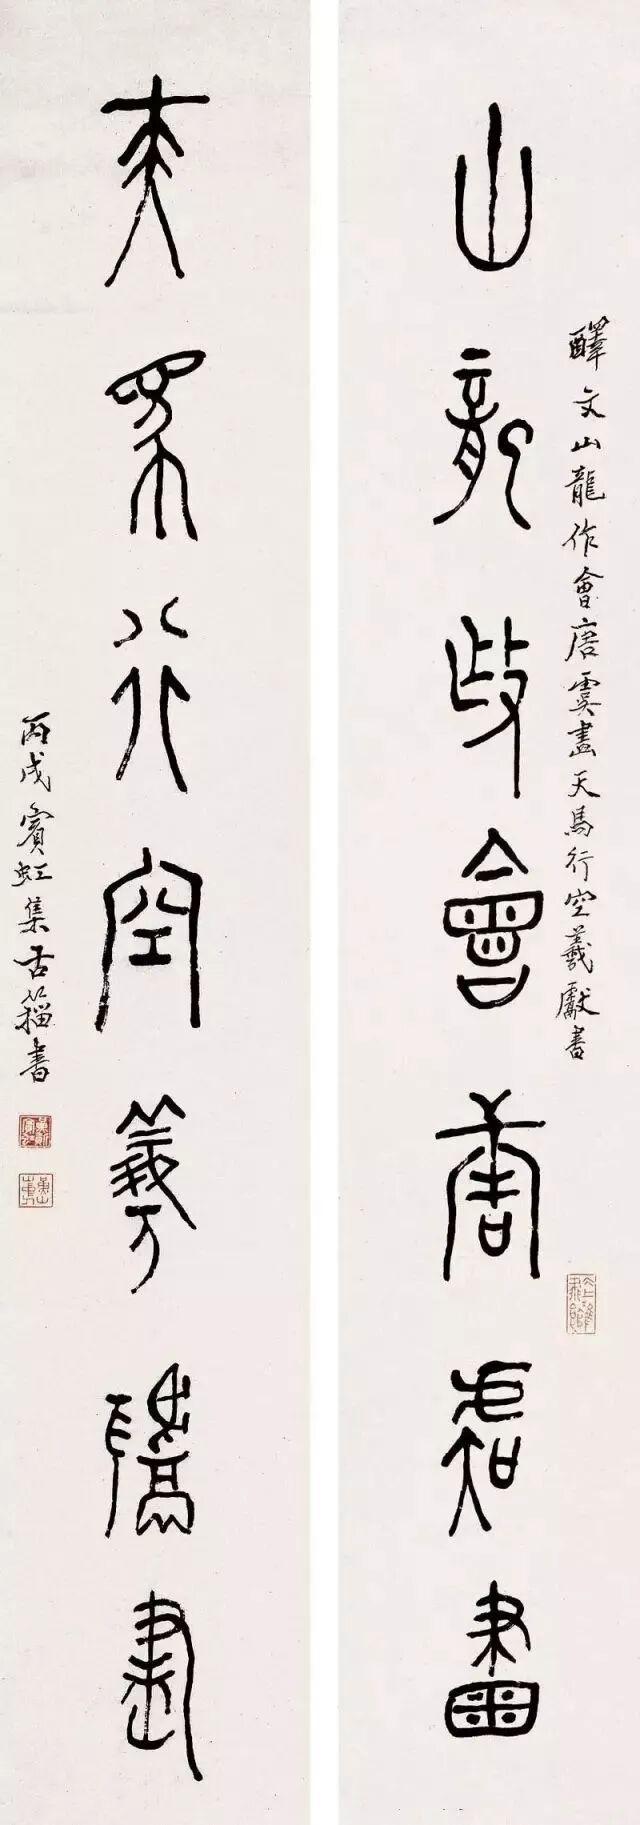 釋文山龍作會唐虞畫天馬行空羲獻書
山龍作會唐虞畫
天馬行空羲獻書
丙戌賓虹集古籀書